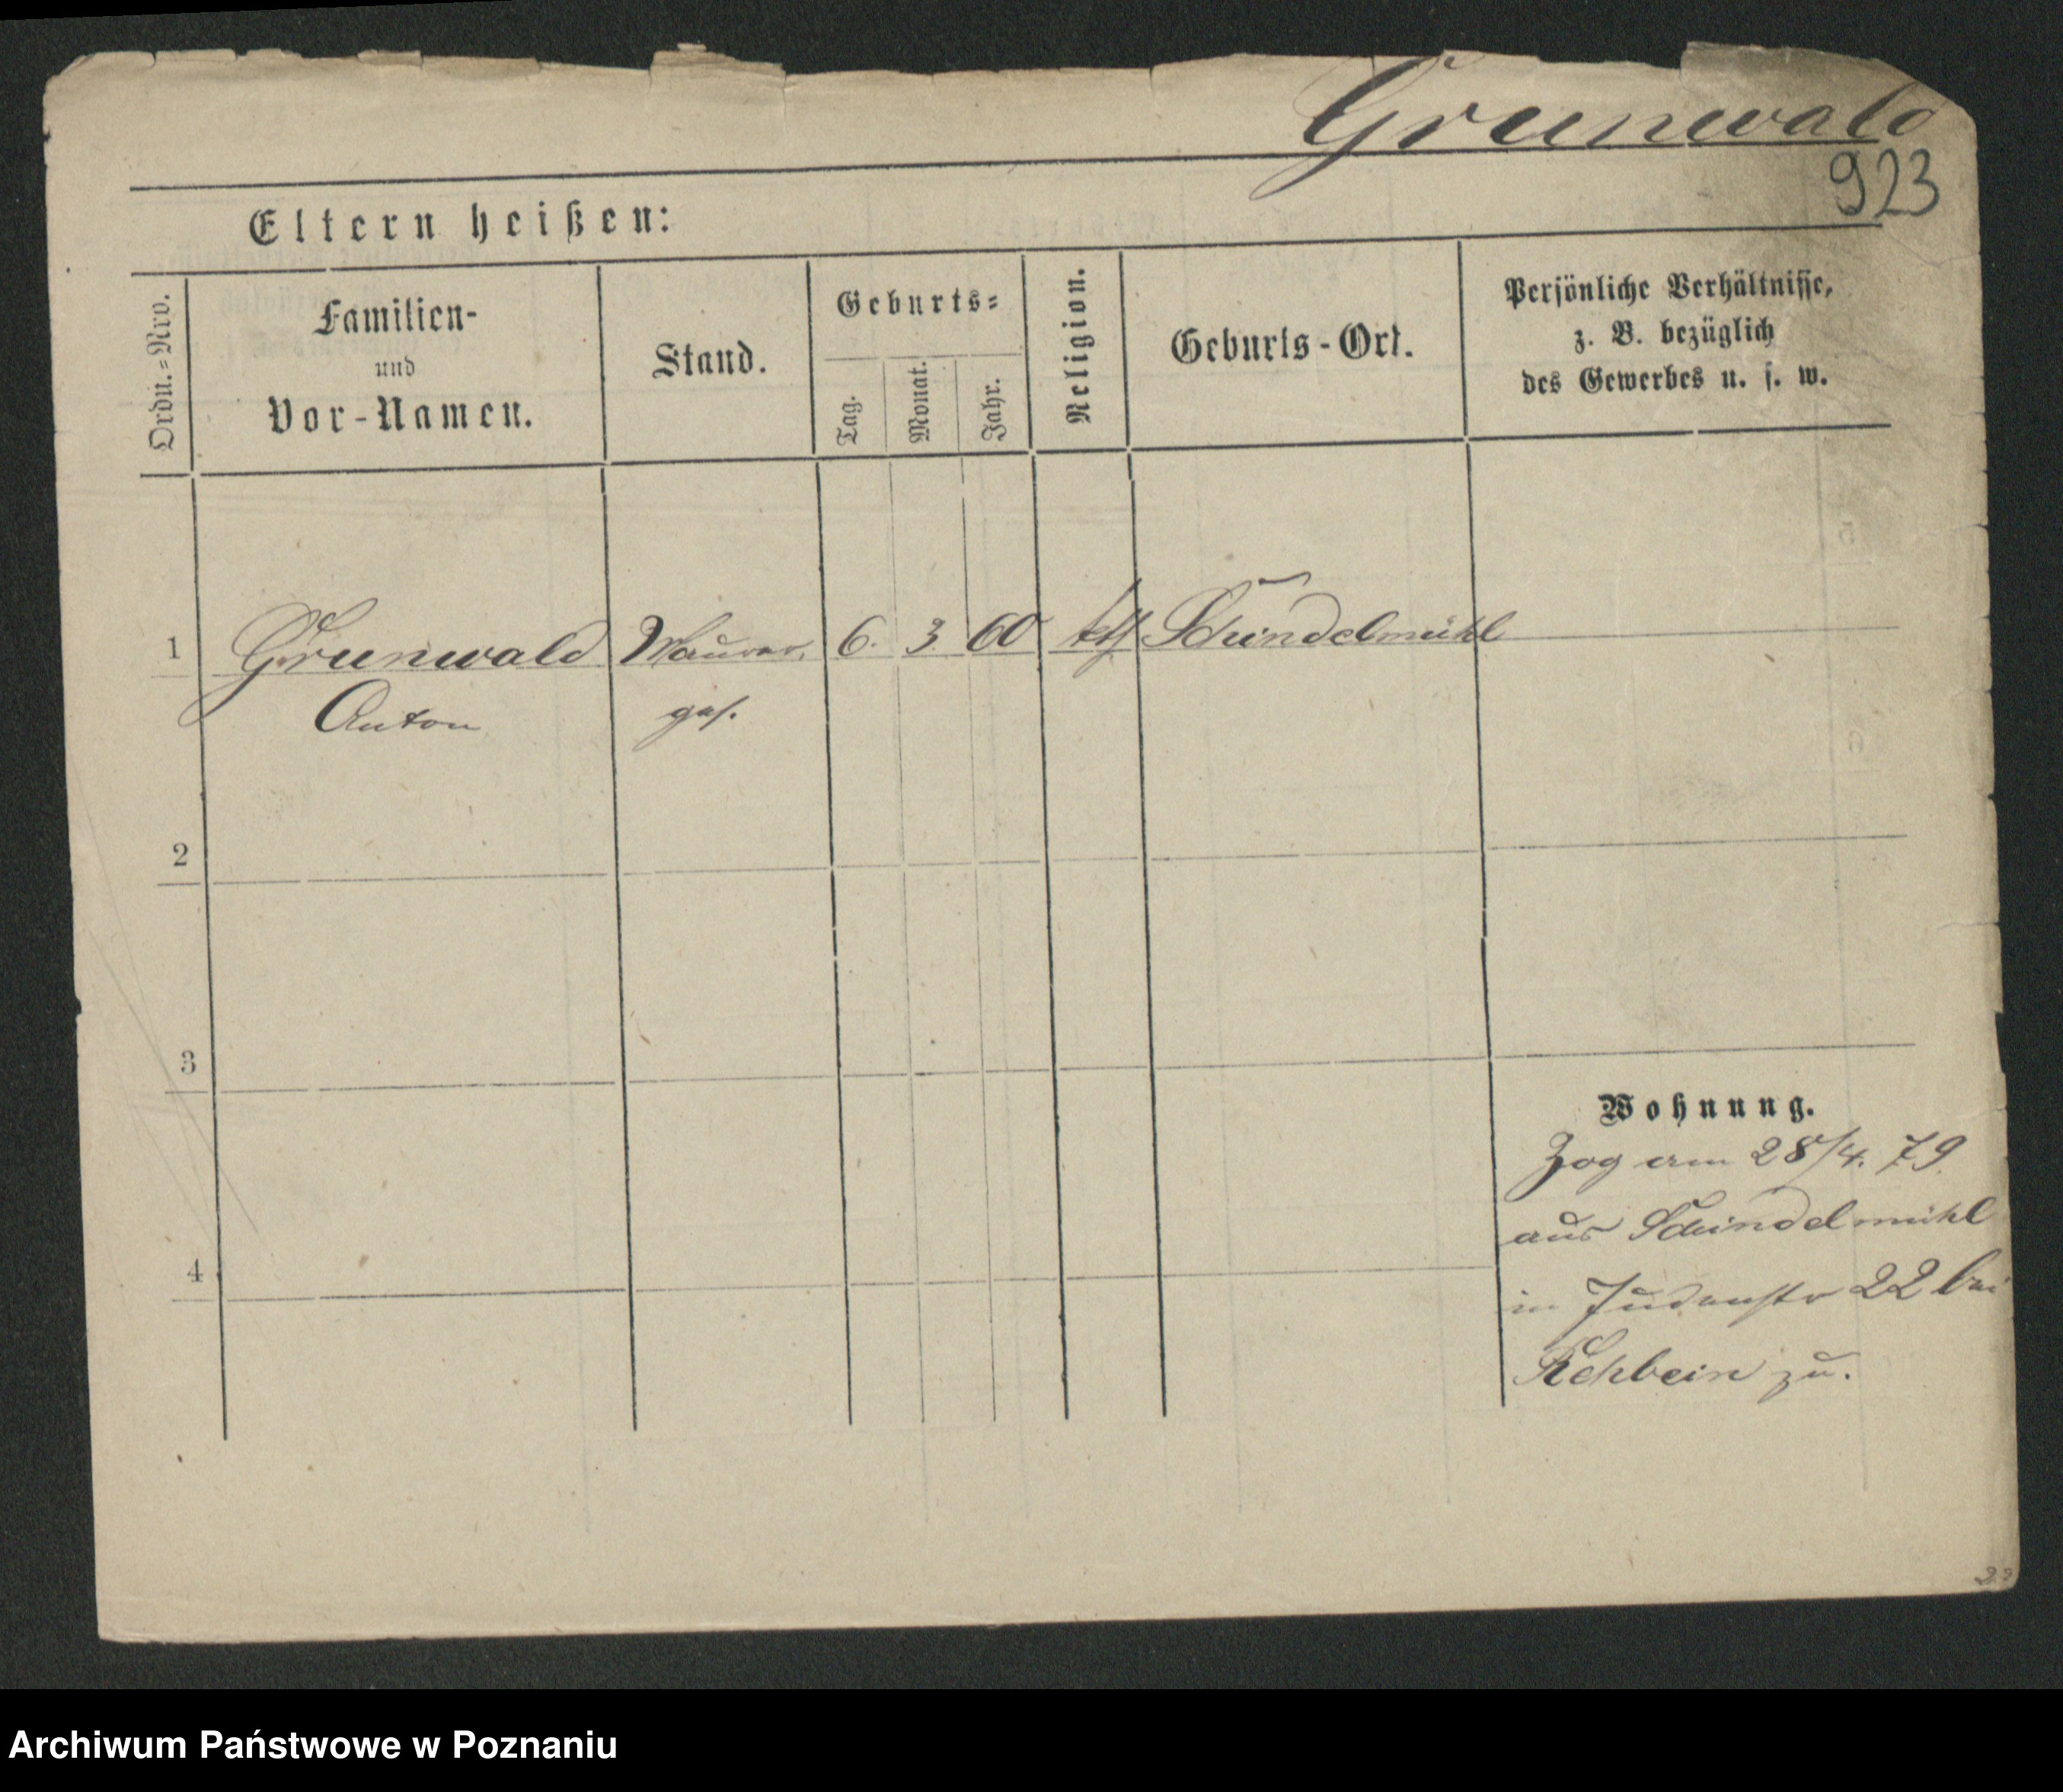 Grunwald
923
Eltern heißen:
Ordn.=Nro.
Familien-
und
Vor-Namen.
Stand.
Geburts=
Tag.
Monat.
Jahr.
Religion.
Geburts-Ort.
Persönliche Verhältnisse,
z. B. bezüglich
des Gewerbes u. s. w.
1 Grunwald Maurer 6. 3. 60 kth Schindelmühl
Anton ges.
2
3
Wohnung.
Zog am 28/4. 79.
aus Schindelmühl
4
in Judenstr 22 bei
Rehbein zu.
Archiwum Państwowe w Poznaniu